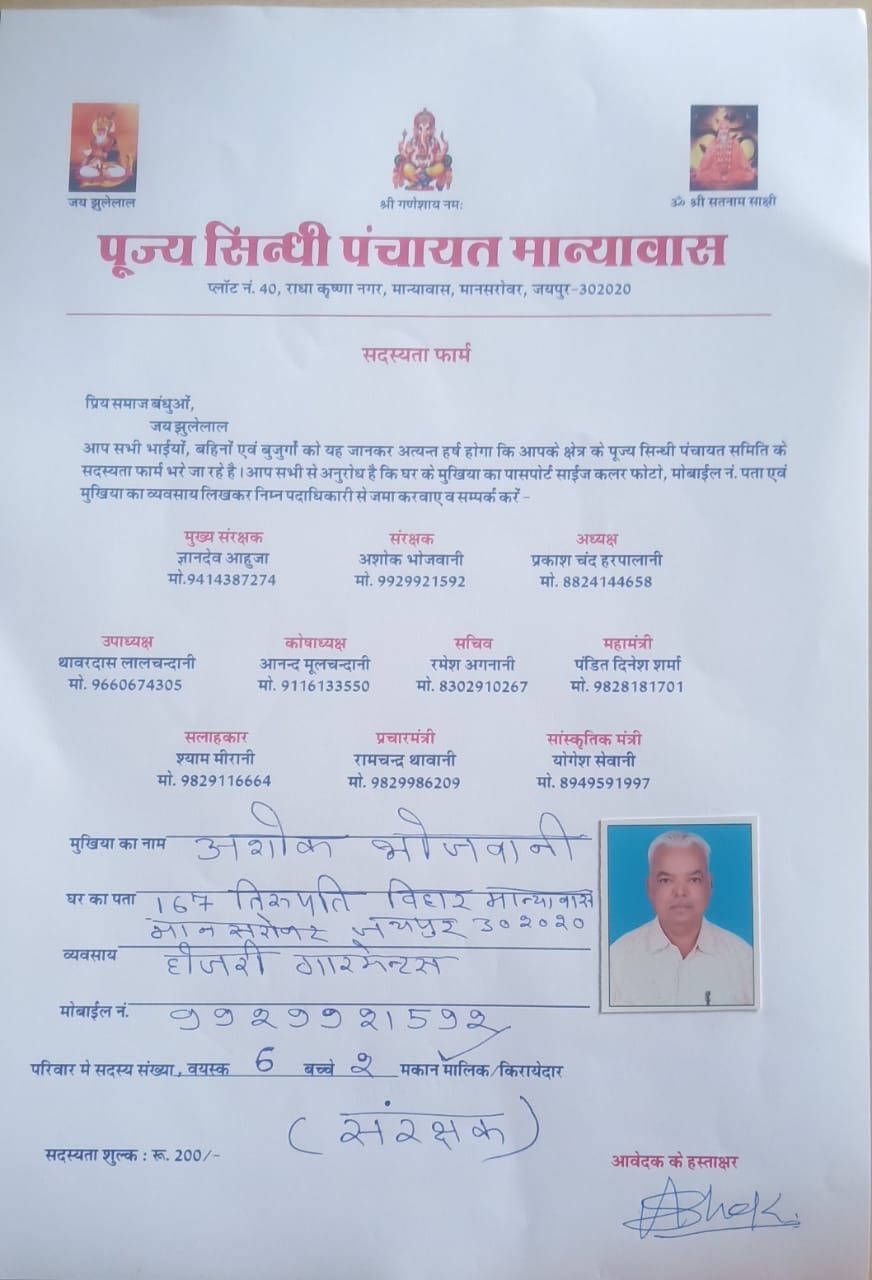 जय झूलेलाल
श्री गणेशाय नमः
ॐ श्री सतनाम साक्षी
पूज्य सिन्धी पंचायत मान्यावास
प्लॉट नं. 40, राधा कृष्णा नगर, मान्यावास, मानसरोवर, जयपुर-302020
सदस्यता फार्म
प्रिय समाज बंधुओं,
जय झूलेलाल
आप सभी भाईयों, बहिनों एवं बुजुर्गो को यह जानकर अत्यन्त हर्ष होगा कि आपके क्षेत्र के पूज्य सिन्धी पंचायत समिति के
सदस्यता फार्म भरे जा रहे है। आप सभी से अनुरोध है कि घर के मुखिया का पासपोर्ट साईज कलर फोटो, मोबाईल नं. पता एवं
मुखिया का व्यवसाय लिखकर निम्न पदाधिकारी से जमा करवाए व सम्पर्क करें -
मुख्य संरक्षक संरक्षक अध्यक्ष
ज्ञानदेव आहुजा अशोक भोजवानी प्रकाश चंद हरपालानी
मो.9414387274 मो. 9929921592 मो. 8824144658
उपाध्यक्ष कोषाध्यक्ष सचिव महामंत्री
थावरदास लालचन्दानी आनन्द मूलचन्दानी रमेश अगनानी पंडित दिनेश शर्मा
मो. 9660674305 मो. 9116133550 मो. 8302910267 मो. 9828181701
सलाहकार प्रचारमंत्री सांस्कृतिक मंत्री
श्याम मीरानी रामचन्द्र थावानी योगेश सेवानी
मो. 9829116664 मो. 9829986209 मो. 8949591997
मुखिया का नाम अशोक भोजवानी
घर का पता 167 तिरुपति विहार मान्यावास
मानसरोवर जयपुर ३०२०२०
व्यवसाय हौजरी गारमेन्टस
मोबाईल नं. ९९२९९२1५९२
परिवार मे सदस्य संख्या, वयस्क 6 बच्चे २ मकान मालिक/किरायेदार
(संरक्षक)
सदस्यता शुल्क : रू. 200/-
आवेदक के हस्ताक्षर